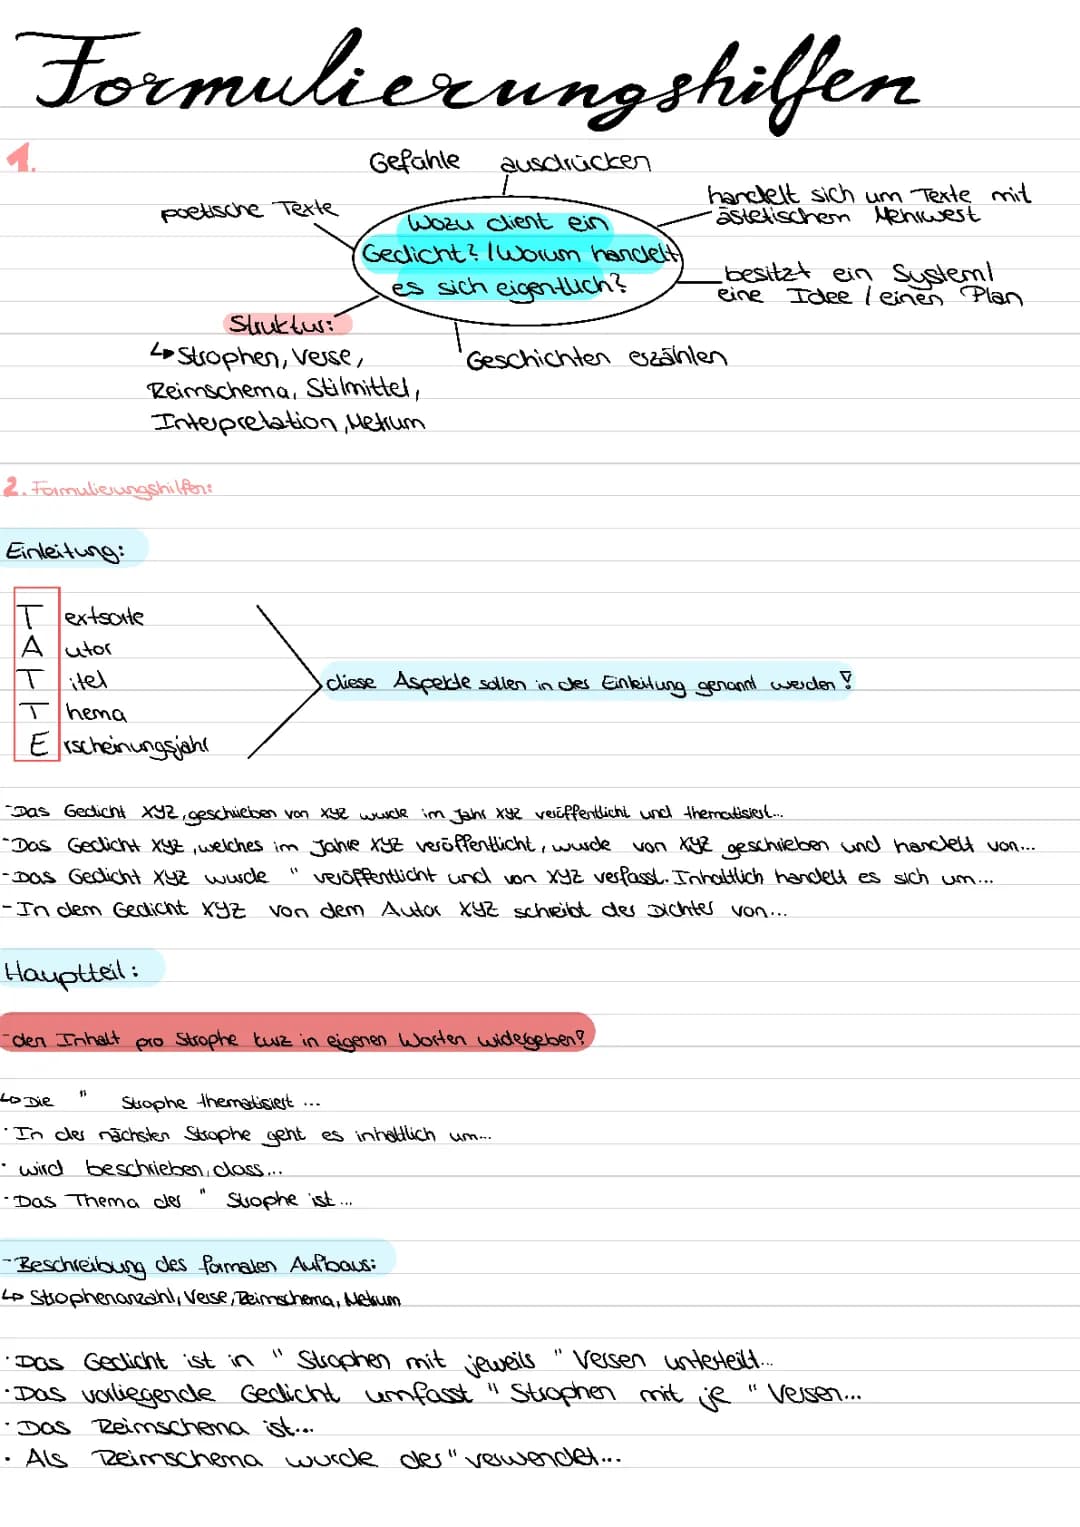 Formulierungshilfen
1.
Gefühle ausdrücken
poetische Texte
handelt sich um Texte mit
ästetischem Mehrwert
Wozu dient ein
Gedicht? / Worum handelt
es sich eigentlich?
besitzt ein System/
eine Idee / einen Plan
Struktur:
↳ Strophen, Verse,
Reimschema, Stilmittel,
Interpretation, Metrum
Geschichten erzählen
2. Formulierungshilfen:
Einleitung:
Textsorte
Autor
Titel
Thema
Erscheinungsjahr
diese Aspekte sollen in der Einleitung genannt werden!
-Das Gedicht XYZ, geschrieben von XYZ wurde im Jahr XYZ veröffentlicht und thematisiert...
-Das Gedicht XYZ, welches im Jahre XYZ veröffentlicht, wurde von XYZ geschrieben und handelt von...
-Das Gedicht XYZ wurde " veröffentlicht und von XYZ verfasst. Inhaltlich handelt es sich um...
-In dem Gedicht XYZ von dem Autor XYZ schreibt der Dichter von...
Hauptteil:
-den Inhalt pro Strophe kurz in eigenen Worten widergeben!
↳ Die " Strophe thematisiert ...
· In der nächsten Strophe geht es inhaltlich um...
· wird beschrieben, dass...
· Das Thema der " Strophe ist ...
-Beschreibung des formalen Aufbaus:
↳ Strophenanzahl, Verse, Reimschema, Metrum
· Das Gedicht ist in " Strophen mit jeweils " Versen unterteilt...
· Das vorliegende Gedicht umfasst " Strophen mit je " Versen...
· Das Reimschema ist...
· Als Reimschema wurde der " verwendet...